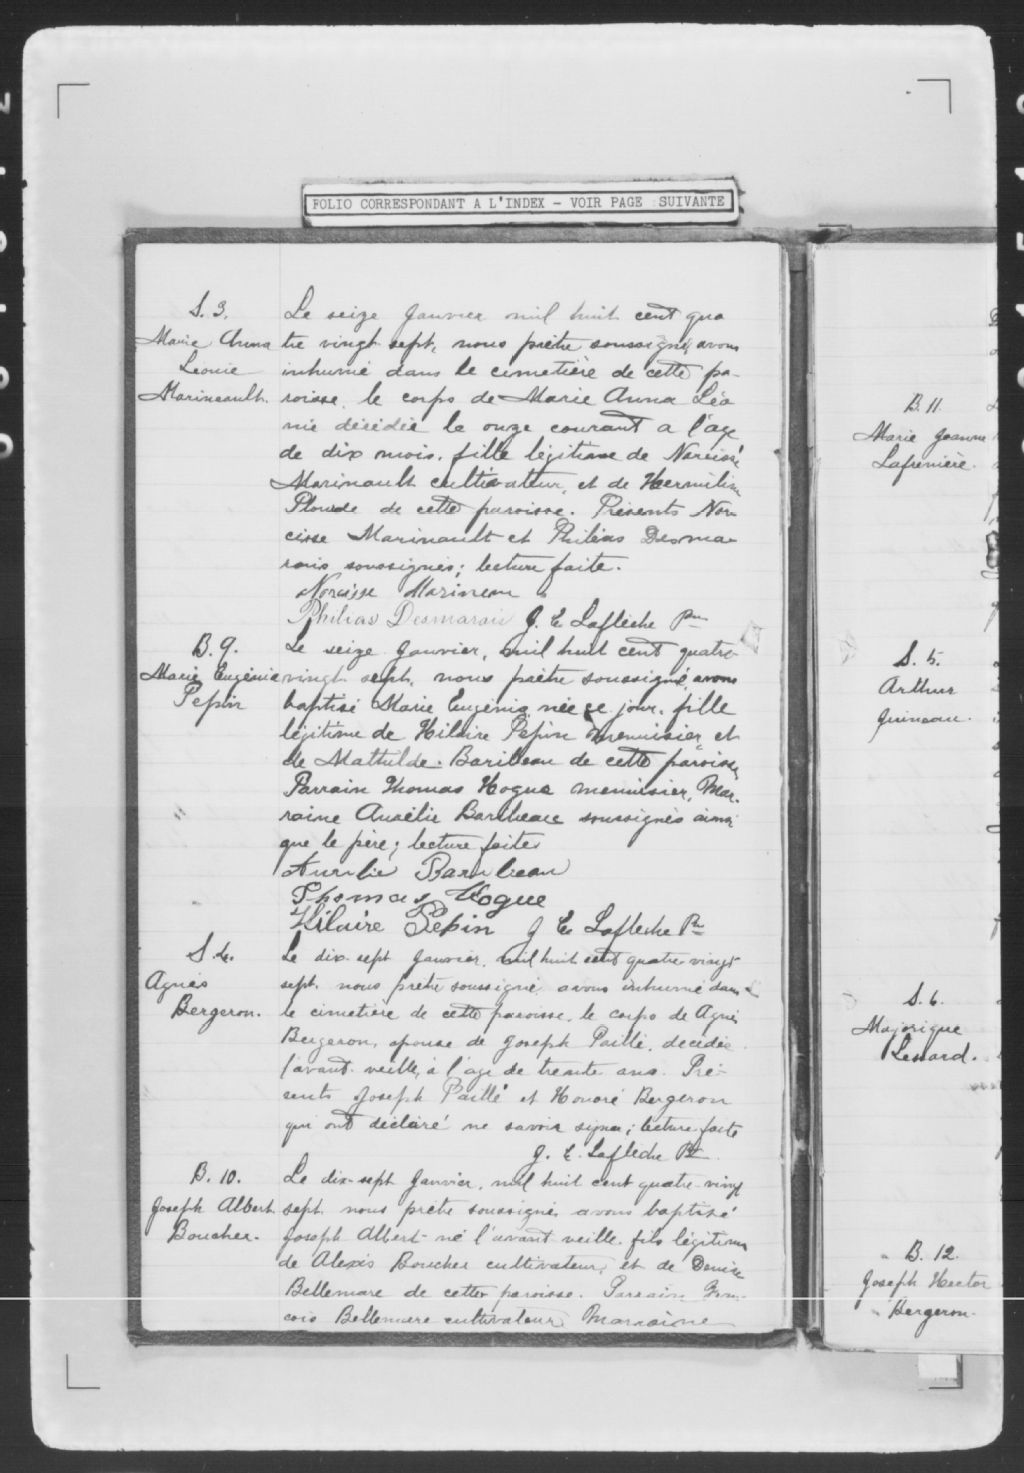 FOLIO CORRESPONDANT A L'INDEX - VOIR PAGE SUIVANTE
S. 3.
Marie Anna
Leonie
Marineault.
Le seize Janvier mil huit cent qua
tre vingt sept, nous prêtre soussigné, avons
inhumé dans le cimetière de cette pa-
roisse, le corps de Marie Anna Léo
nie décédée le onze courant a l'age
de dix mois, fille légitime de Narcisse
Marinault cultivateur, et de Hermeline
Plourde de cette paroisse. Présents Nar-
cisse Marinault et Philias Desma-
rais soussignés; lecture faite.
Narcisse Marineau
Philias Desmarais J. E. Laflèche Ptre
B. 9.
Marie Eugénie
Pepin
Le seize Janvier, mil huit cent quatre-
vingt sept, nous prêtre soussigné, avons
baptisé Marie Eugénie, née ce jour, fille
légitime de Hilaire Pépin menuisier et
de Mathilde Baribeau de cette paroisse,
Parrain Thomas Hogue menuisier, Mar-
raine Aurélie Baribeau soussignés ainsi
que le père; lecture faite
Aurelie Baribeau
Thomas Hogue
Hilaire Pépin J E Laflèche Ptre
S. 4.
Agnès
Bergeron.
Le dix-sept Janvier, mil huit cent quatre-vingt
sept, nous prêtre soussigné avons inhumé dans
le cimetière de cette paroisse, le corps de Agnès
Bergeron, epouse de Joseph Paillé, decédée
l'avant-veille, à l'age de trente ans. Pré-
sents Joseph Paillé et Honoré Bergeron
qui ont déclaré ne savoir signer; lecture faite
J. E. Laflèche Ptre
B. 10.
Joseph Albert
Boucher.
Le dix-sept Janvier, mil huit cent quatre-vingt
sept, nous prêtre soussigné, avons baptisé
Joseph Albert né l'avant veille, fils légitime
de Alexis Boucher cultivateur, et de Denise
Bellemare de cette paroisse. Parrain Fran-
cois Bellemare cultivateur, Marraine
B. 11.
Marie Jeanne
Lafrenière.
S. 5.
Arthur
Guineau.
S. 6.
Majorique
Lesard.
B. 12.
Joseph Hector
Bergeron.